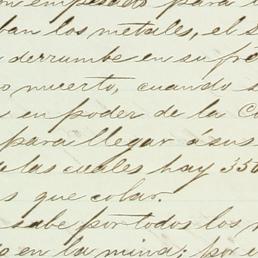 on empesado para
ban los metales, el s
derrumbe en su fre
o muerto, cuando s
en poder de la Co
para llegar á sus
de las cuales hay 350
s que colar.
sabe por todos los m
en la mina; por